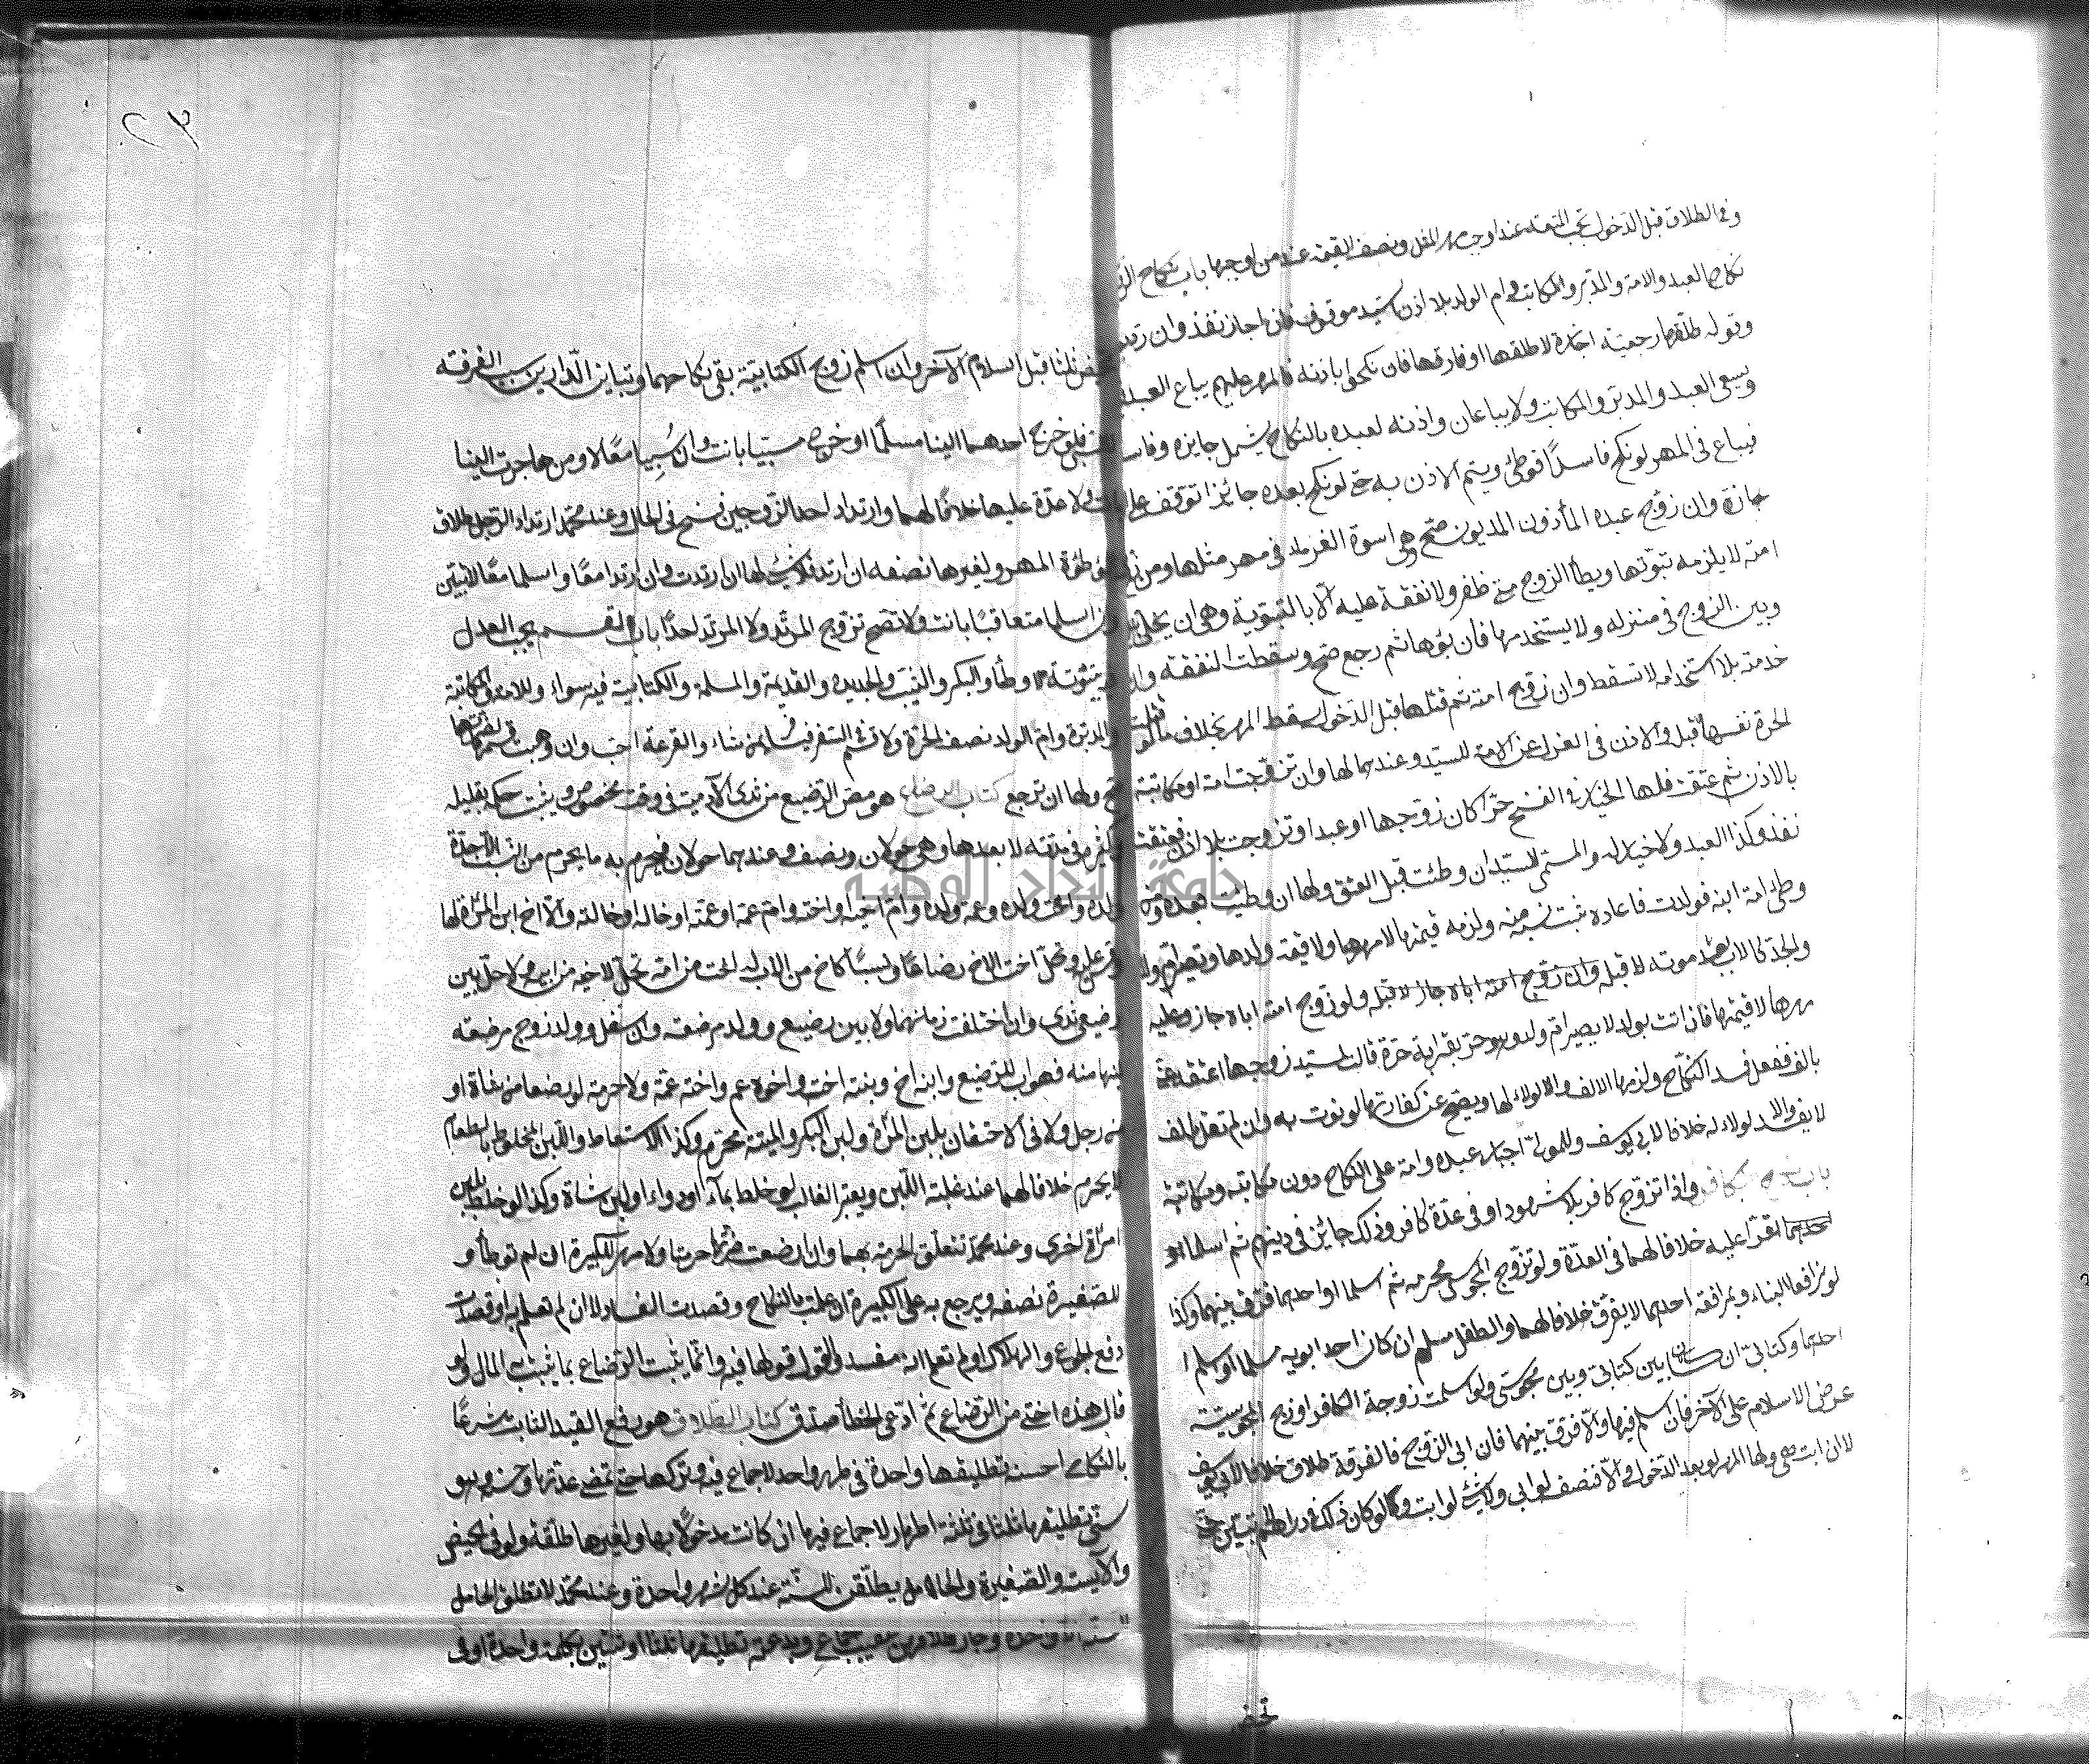 وفي الطلاق قبل الدخول تجب المتعة عند من اوجب مهر المثل ونصف القيمة عند من اوجبها باب نكاح الرق
نكاح العبد والامة والمدبر والمكاتب وام الولد بلا اذن السيد موقوف فان اجاز نفذ وان رد بطل
وقوله طلقها رجعية اجازة لا طلقها او فارقها فان نكحوا باذنه فالمهر عليهم يباع العبد فيه
ويسعى العبد والمدبر والمكاتب ولا يباعان واذنه لعبده بالنكاح يشمل جايزه وفاسده
فيباع في المهر لو نكح فاسدًا فوطئ ويتم الاذن به حتى لو نكح بعده جائزا توقف على
اجازة وان زوج عبده المأذون المديون صح وهي اسوة الغرماء في مهر مثلها ومن زوج
امته لا يلزمه تبوئتها ويطأ الزوج متى ظفر ولا نفقة عليه الا بالتبوية وهي ان يخلي بينها
وبين الزوج في منزله ولا يستخدمها فان بوأها ثم رجع صح وسقطت النفقة وان
خدمته بلا استخدامه لا تسقط وان زوج امته ثم قتلها قبل الدخول سقط المهر بخلاف ما لو قتلت
الحرة نفسها قبله والاذن في العزل عن الامة للسيد وعندهما لها وان تزوجت امة او مكاتبة
بالاذن ثم عتقت فلها الخيار في الفسخ حرا كان زوجها او عبدا وتزوجت بلا اذن فعتقت
نفذ وكذا العبد ولا خيار له والمسمى للسيد ان وطئت قبل العتق ولها ان وطيت بعده ومن
وطئ امة ابنه فولدت فادعاه ثبت نسبه منه ولزمه قيمتها لا مهرها ولا قيمة ولدها وتصير ام ولد
والجد كالاب بعد موته لا قبله وان زوج امته اباه جاز لا قبله ولو زوج امته اباه جاز وعليه
مهرها لا قيمتها فان اتت بولد لا يصير ام ولد وهو حر بقرابة حرة قالت لسيد زوجها اعتقه عني
بالف ففعل فسد النكاح ولزمها الالف والولاء لها ويصح عن كفارتها لو نوت به وان لم تقل بالف
لا يفسد والولاء له خلافا لابي يوسف وللمولى اجبار عبده وامته على النكاح دون مكاتبه ومكاتبته
باب نكاح الكافر واذا تزوج كافر بلا شهود او في عدة كافر وذلك جائز في دينهم ثم اسلما او
احدهما اقرا عليه خلافا لهما في العدة ولو تزوج المجوسي محرمه ثم اسلما او احدهما فرق بينهما وكذا
لو ترافعا الينا وبمرافعة احدهما لا يفرق خلافا لهما والطفل مسلم ان كان احد ابويه مسلما او اسلم
احدهما وكتابي ان كان بين كتابي وبين مجوسي ولو اسلمت زوجة الكافر او زوج المجوسية
عرض الاسلام على الآخر فان اسلم فبها والا فرق بينهما فان ابى الزوج فالفرقة طلاق خلافا لابي يوسف
لا ان ابت هي ولها المهر لو بعد الدخول والا فنصف لو ابى ولا شيء لو ابت ولو كان ذلك في دارهم لا تبين حتى
تحيض
٢٣
تحيض ثلثا قبل اسلام الآخر وان اسلم زوج الكتابية بقي نكاحهما وتباين الدارين سبب الفرقة
لا السبي فلو خرج احدهما الينا مسلمًا او خرج مسبيا بانت وان سُبِيا معًا لا ومن هاجرت الينا
بانت ولا عدة عليها خلافًا لهما وارتداد احد الزوجين فسخ في الحال وعند محمد ارتداد الرجل طلاق
وللموطؤة المهر ولغيرها نصفه ان ارتد ولا شيء لها ان ارتدت وان ارتدا معًا واسلما معًا لا تبين
وان اسلما متعاقبًا بانت ولا تصح تزوج المرتد ولا المرتدة احدًا باب القسم يجب العدل
فيه بيتوتة لا وطأ والبكر والثيب والجديدة والقديمة والمسلمة والكتابية فيه سواء وللامة والمكاتبة
والمدبرة وام الولد نصف الحرة ولا قسم في السفر فيسافر بمن شاء والقرعة احب وان وهبت قسمها لضرتها
صح ولها ان ترجع كتاب الرضاع هو مص الرضيع من ثدي الآدمية في وقت مخصوص ويثبت حكمه بقليله
وكثيره في مدته لا بعدها وهي حولان ونصف وعندهما حولان فيحرم به ما يحرم من النسب الا جدة
ولده واخت ولده وعمة ولده وام اخيه او اخته وام عمه او عمته او خاله او خالته والا اخ ابن المرأة لها
وقس عليه وتحل اخت الاخ رضاعًا ونسبًا كاخ من الاب له اخت من امه تحل لاخيه من ابيه ولا حل بين
رضيعي ثدي وان اختلفت زمانهما ولا بين رضيع وولد مرضعته وان سفل وولد زوج مرضعته
لبنها منه فهو اب للرضيع وابنه اخ وبنته اخت واخوه عم واخته عمة ولا حرمة لو رضعا من شاة او
من رجل ولا في الاحتقان بلبن المرأة ولبن البكر والميتة محرم وكذا الاستعاط واللبن المخلوط بالطعام
لا يحرم خلافا لهما عند غلبة اللبن ويعتبر الغالب لو خلط بماء او دواء او لبن شاة وكذا لو خلط بلبن
امرأة اخرى وعند محمد تتعلق الحرمة بهما وان ارضعت ضرتها حرمتا ولا مهر للكبيرة ان لم توطأ و
للصغيرة نصفه ويرجع به على الكبيرة ان علمت بالنكاح وقصدت الفساد لا ان لم تعلم به او قصدت
دفع الجوع والهلاك او لم تعلم انه مفسد والقول قولها فيه وانما يثبت الرضاع بما يثبت به المال ولو
قال هذه اختي من الرضاع ثم ادعى الخطأ صدق كتاب الطلاق هو رفع القيد الثابت شرعًا
بالنكاح احسنه تطليقها واحدة في طهر واحد لا جماع فيه وتركها حتى تمضي عدتها وحسنه وهو
سني تطليقها ثلثا في ثلثة اطهار لا جماع فيها ان كانت مدخولًا بها ولغيرها طلقة ولو في الحيض
والآيسة والصغيرة والحامل يطلقن للسنة عند كل شهر واحدة وعند محمد لا تطلق الحامل
للسنة الا واحدة وجاز طلاقهن عقيب الجماع وبدعيه تطليقها ثلثا او ثنتين بكلمة واحدة او في